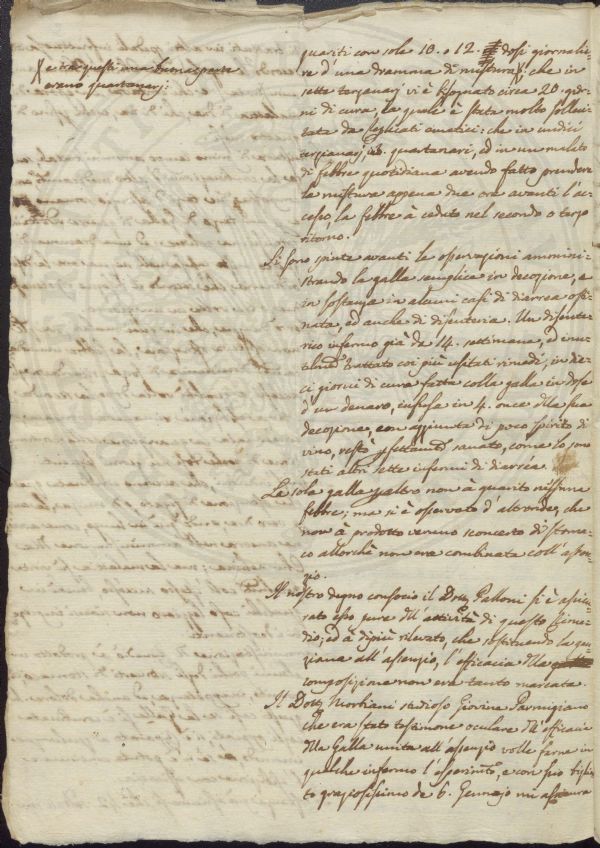 X e tra questi una buona parte
erano quartanarj:
guariti con sole 10. o 12. dosi giornalie:
re d'una dramma di mistura X; che in
sette terzanarj vi è bisognato circa 20. gior:
ni di cura, la quale è stata molto solleci:
tata da leggieri emetici: che in undici
terzianarj, quartanari, ed in un malato
di febbre quotidiana avendo fatto prendere
la mistura appena due ore avanti l'ac:
cesso, la febbre à ceduto nel secondo o terzo
ritorno.
Si sono spinte avanti le osservazioni ammini:
strando la galla semplice in decozione, e
in sostanza in alcuni casi di diarrea osti:
nata, ed anche di disenteria. Un disente:
rico infermo già da 14. settimane, ed inu:
tilmte. trattato coi più usitati rimedi, in die:
ci giorni di cura fatta colla galla in dose
d'un denaro, infusa in 4. once della sua
decozione, con aggiunta di poco spirito di
vino, restò perfettamte. sanato, come lo sono
stati altri sette infermi di diarréa.
La sola galla peraltro non à guarito nissuna
febbre; ma si è osservato d'altronde, che
non à prodotto veruno sconcerto di stoma:
co allorchè non era combinata coll'assen:
zio.
Il nostro degno consocio il Dotr. Palloni si è assicu:
rato esso pure dell'attività di questo rime:
dio; ed à dipiù rilevato, che sostituendo la gen:
ziana all'assenzio, l'efficacia della
composizione non era tanto marcata.
Il Dotr. studioso Giovine Parmigiano
che era stato testimone oculare dell'efficacia
della Galla unita all'assenzio volle farne in
qualche infermo l'esperimto., e con suo bigliet:
to graziosissimo de 6. Gennajo mi assicura